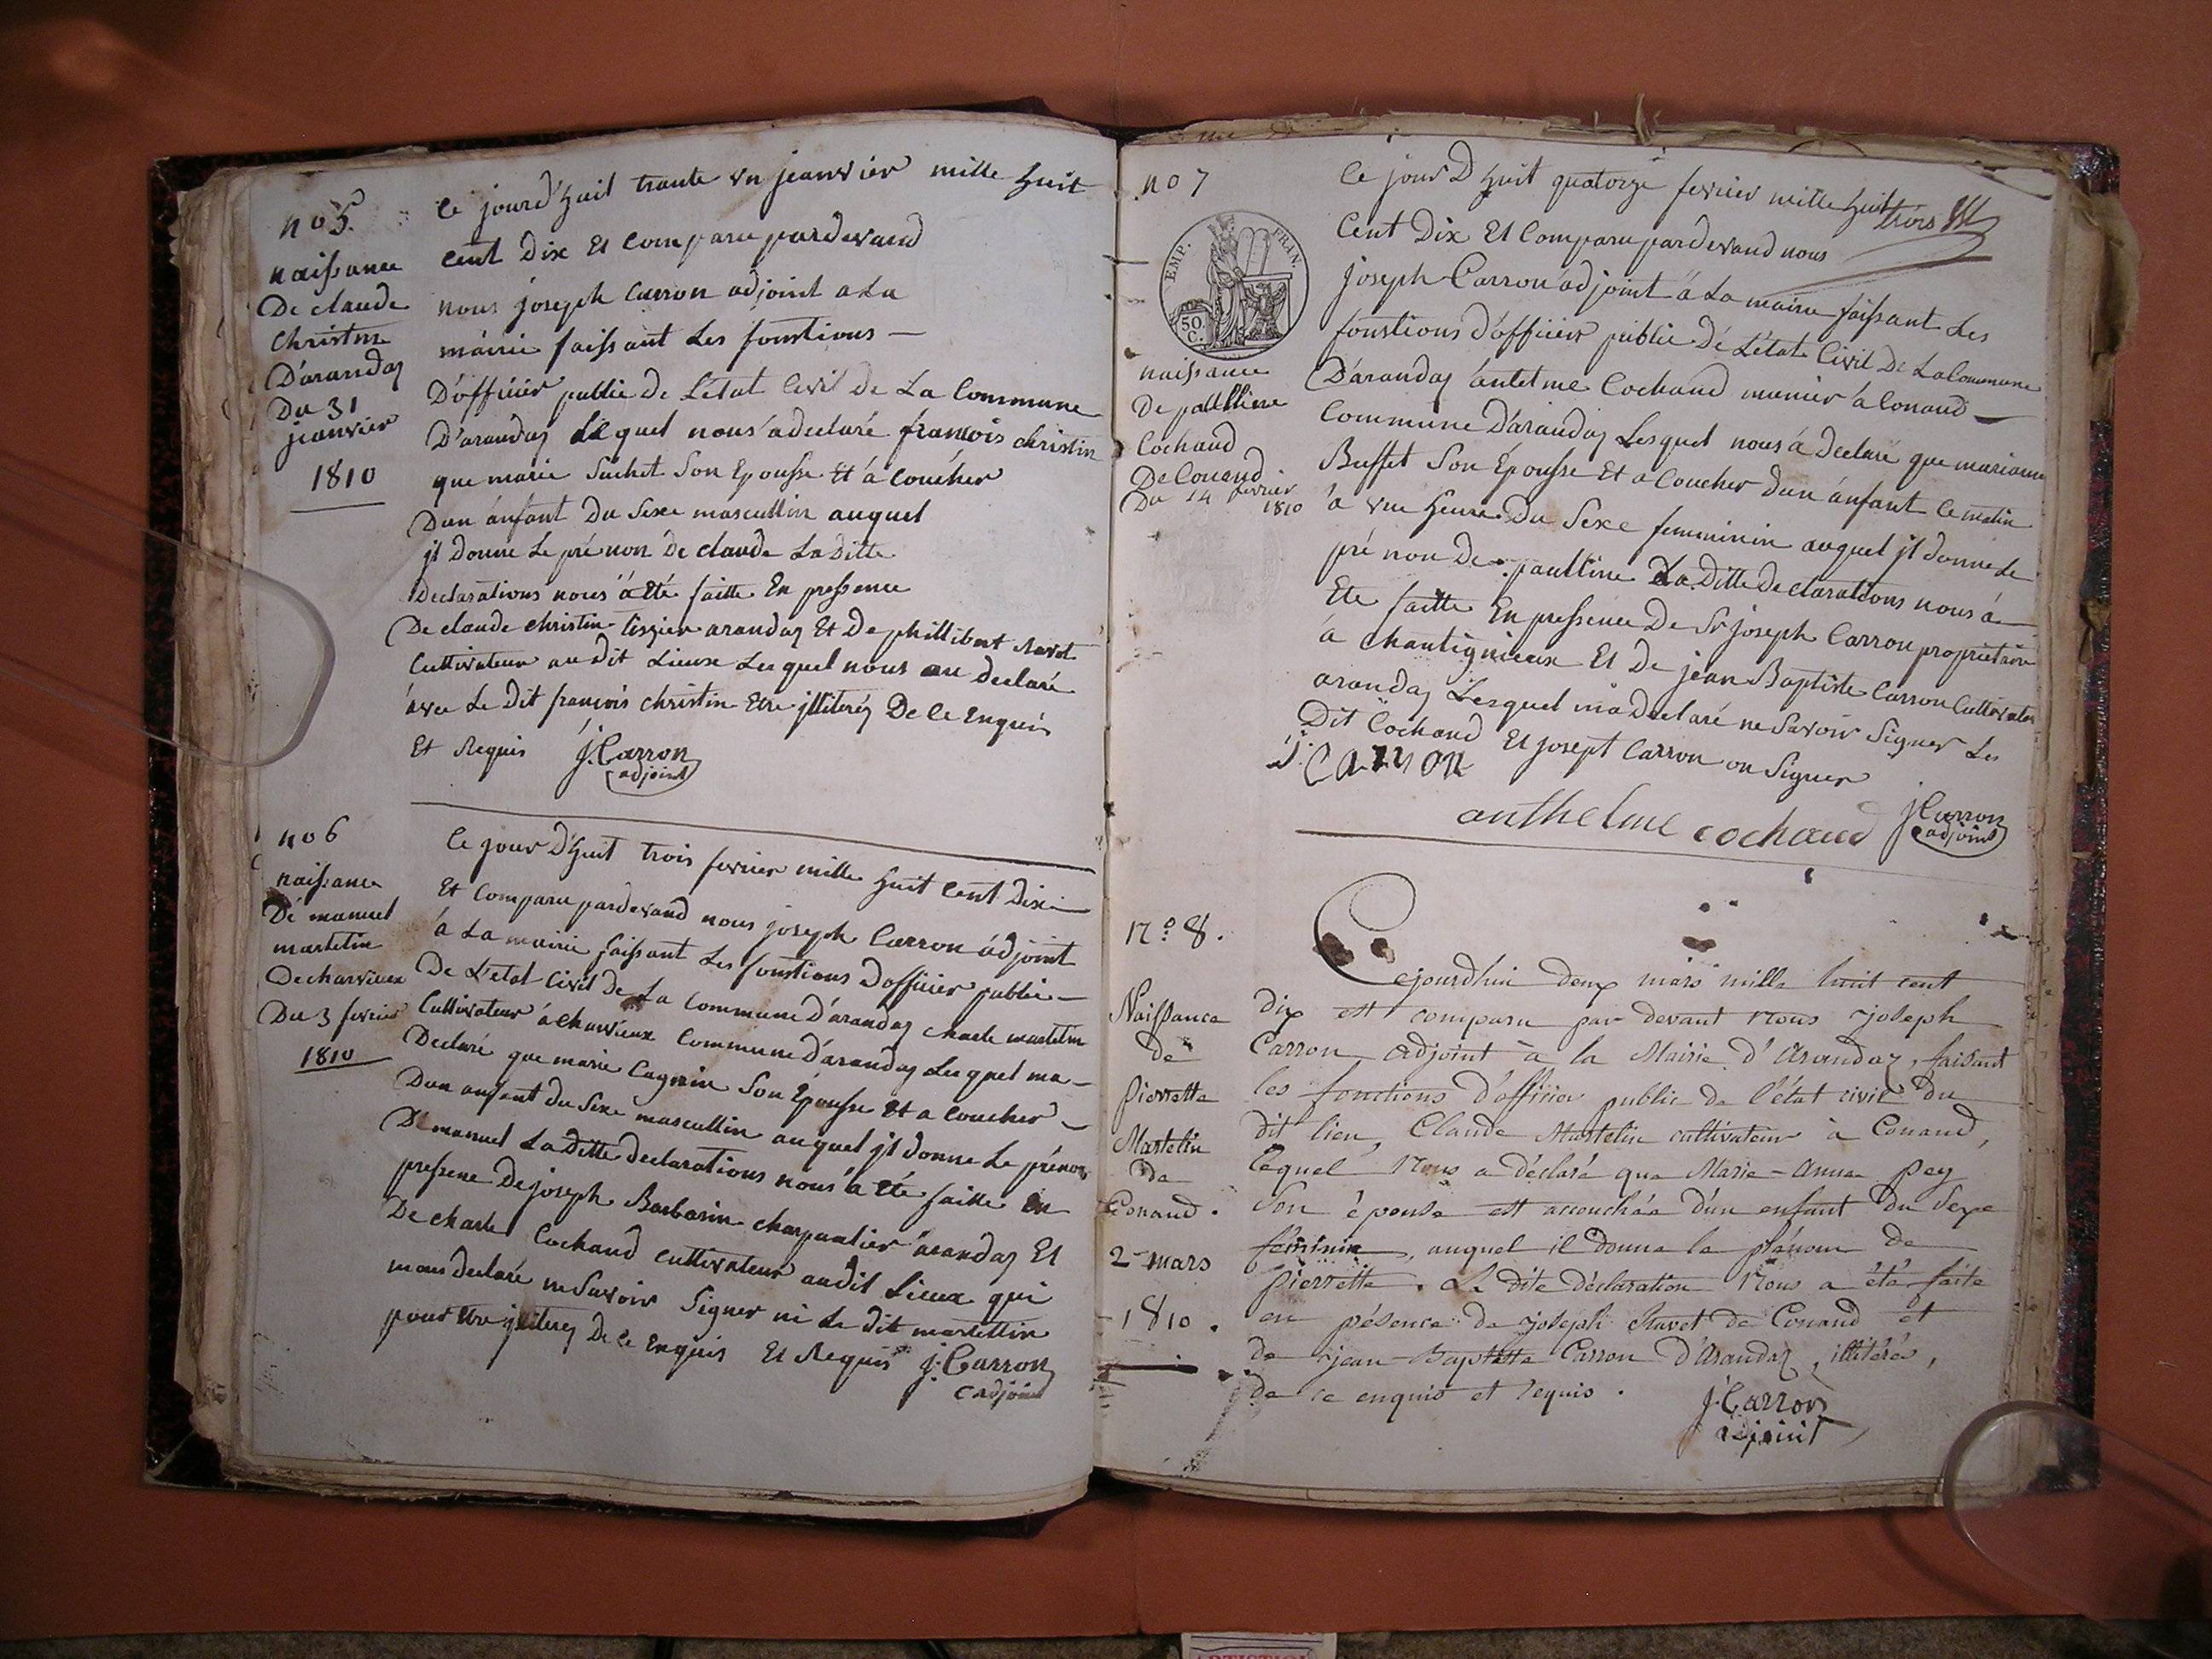 no 5.
naissance
De claude
Christin
D'arandas
Du 31
jeanvier
1810
Ce jourd'huit trante un jeanvier mille huit
cent Dix Et Comparu pardevand
nous joseph Carron adjoint a La
mairie faissant Les fonstions —
D'officier public de L'état Civil De La Commune
D'arandas Lequel nous a declaré françois christin
que marie Suchet Son Epousse Et à Coucher
Dun änfant Du Sexe mascullin auquel
jl donne Le pré non De claude La Ditte
Declarations nous à Eté faitte En pressence
De claude christin tissier arandas Et De phillibert ravet
Cultivateur au dit Lieux Lesquel nous on declaré
avec Le Dit françois christin Etre jlliterés De Ce Enquis
Et Requis j. Carron
adjoint
no 6
naissance
Dé manuel
martelin
De charvieux
Du 3 fevrier
1810
Ce jour D'huit trois fevrier mille huit Cent Dix —
Et Comparu pardevand nous joseph Carron adjoint
à La mairie faissant Les fonstions D'officier public —
De L'état Civil de La Commune D'arandas charle martelin
Cultivateur à charvieux Commune D'arandas Lequel ma —
Declaré que marie Son Épousse Et a Coucher —
Dun anfant du Sexe mascullin auquel jl donne Le prénon
De manuel La Ditte declarations nous à Eté faitte En
pressence De joseph Barbarin charpantier arandas Et
De charle Cochand Cultivateur au dit Lieux qui
mons declaré ne Savoir Signer ni Le dit martellin
pour Etre jlliterés De Ce Enquis Et Requis j. Carron
adjoint
no 7
EMP. FRAN.
50 C.
naissance
De paulline
Cochand
De Conand
Du 14 fevrier
1810
trois
Ce jour D huit quatorze fevrier mille huit
Cent Dix Et Comparu pardevand nous
joseph Carron adjoint à La mairie faissant Les
fonstions d'officier public Dé L'état Civil De La Commune
D'arandas antelme Cochand munier à Conand —
Commune D'arandas Lesquel nous à Declaré que marianne
Buffet Son Épousse Et a Coucher Dun anfant Ce matin
à une heure Du Sexe femminin auquel jl donne Le
pré non De paulline La Ditte Declarations nous à —
Eté faitte En pressence De Sr joseph Carron propriétaire
à chantignieux Et De jean Baptiste Carron Cultivateur
arandas Lesquel mä Declaré ne Savoir Signer Les
Dit Cochand Et josept Carron on Signer
j. CARRON
anthelme cochand
j Carron
adjoint
N.º 8.
Naissance
de
pierrette
Martelin
de
Conand.
2 mars
1810.
Cejourdhui deux mars mille huit cent
dix est comparu par devant nous joseph
Carron adjoint à la Mairie d'Arandaz, faisant
les fonctions d'officier public de l'état civil du
dit lieu, Claude Martelin cultivateur à Conand,
lequel nous a déclaré que Marie-Anne pey
son épouse est accouchée d'un enfant du sexe
féminin, auquel il donne le prénom de
pierrette. La dite déclaration nous a été faite
en présence de joseph Ravet de Conand et
de jean-Baptiste Carron d'Arandaz, illitérés,
de ce enquis et requis.
j. Carron
adjoint